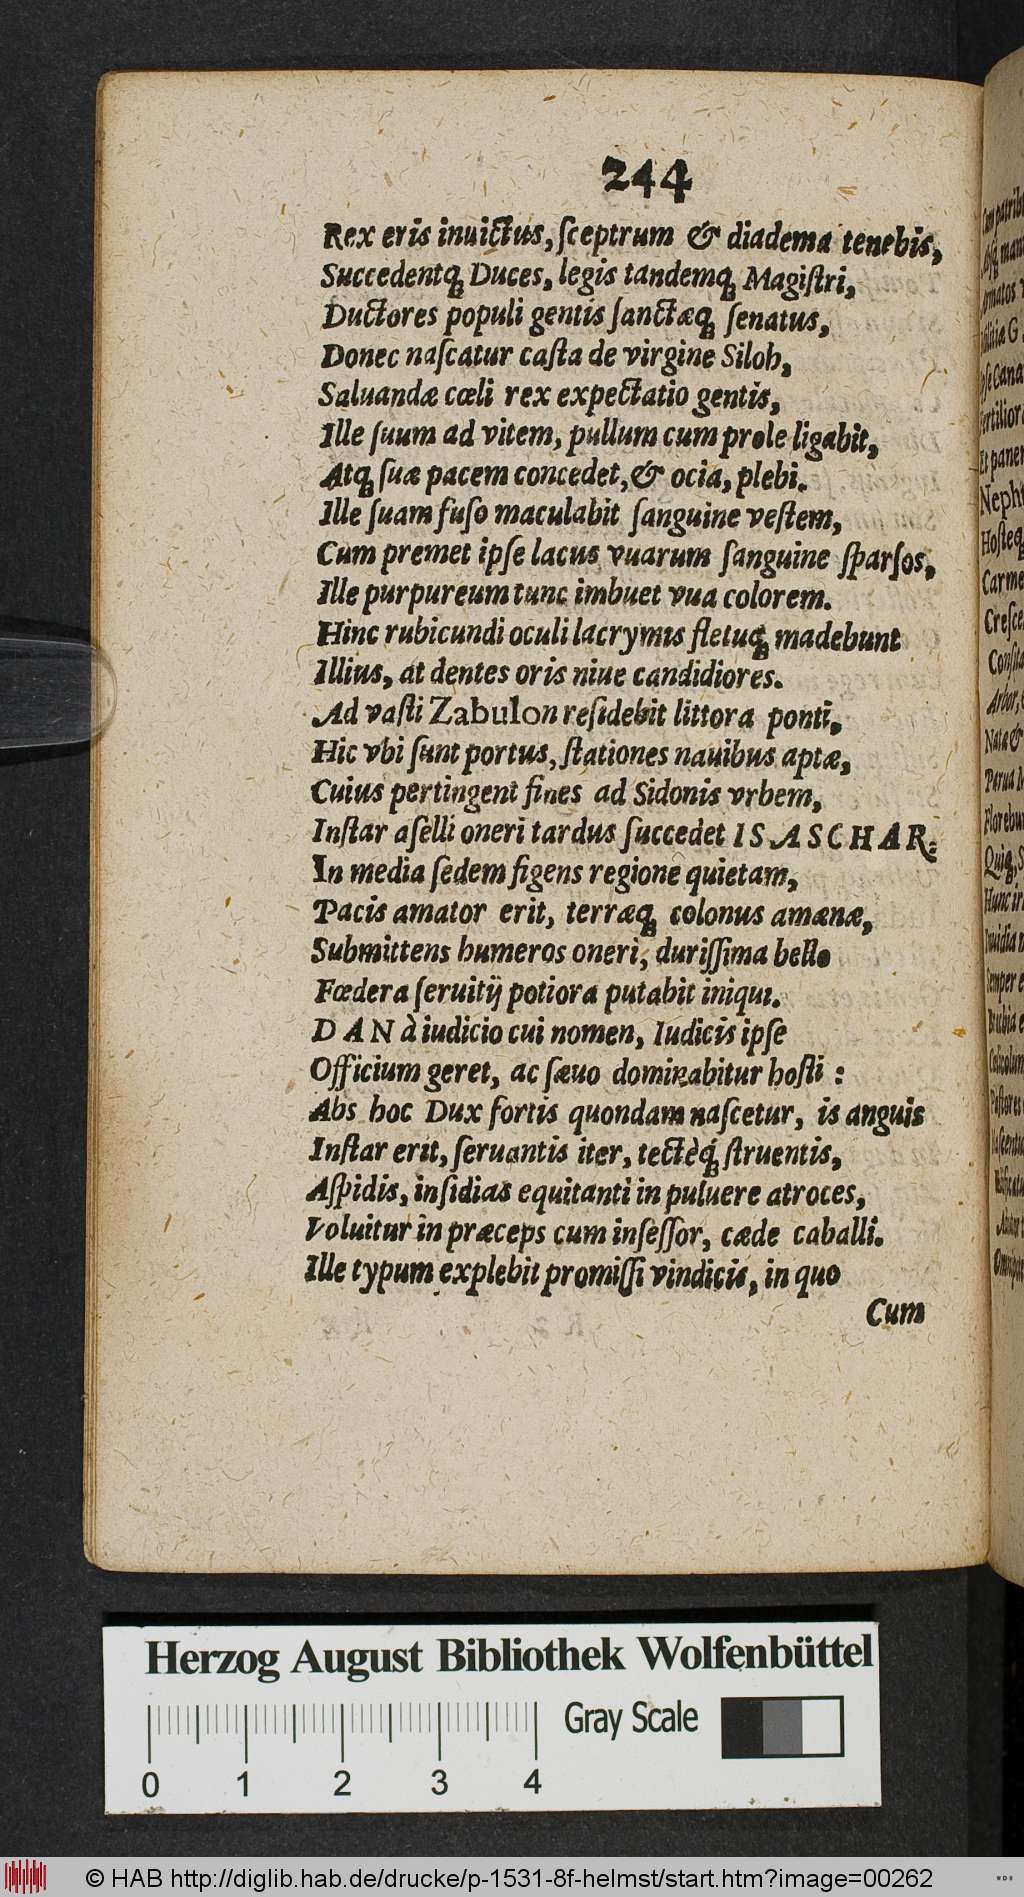 244
Rex eris inuictus, ſceptrum & diadema tenebis,
Succedentq́ꝫ Duces, legis tandemq́ꝫ Magiſtri,
Ductores populi gentis ſanctæq́ꝫ ſenatus,
Donec naſcatur caſta de virgine Siloh,
Saluandæ cœli rex expectatio gentis,
Ille ſuum ad vitem, pullum cum prole ligabit,
Atq́ꝫ ſuæ pacem concedet, & ocia, plebi.
Ille ſuam fuſo maculabit ſanguine veſtem,
Cum premet ipſe lacus vuarum ſanguine ſparſos,
Ille purpureum tunc imbuet vua colorem.
Hinc rubicundi oculi lacrymis fletuq́ꝫ madebunt
Illius, at dentes oris niue candidiores.
Ad vaſti Zabulon reſidebit littora ponti,
Hic vbi ſunt portus, ſtationes nauibus aptæ,
Cuius pertingent fines ad Sidonis vrbem,
Inſtar aſelli oneri tardus ſuccedet ISASCHAR:
In media ſedem figens regione quietam,
Pacis amator erit, terræq́ꝫ colonus amænæ,
Submittens humeros oneri, duriſſima bello
Fœdera ſeruitij potiora putabit iniqui.
DAN à iudicio cui nomen, Iudicis ipſe
Officium geret, ac ſævo dominabitur hoſti :
Abs hoc Dux fortis quondam naſcetur, is anguis
Inſtar erit, ſeruantis iter, tectèq́ꝫ ſtruentis,
Aſpidis, inſidias equitanti in puluere atroces,
Voluitur in præceps cum inſeſſor, cæde caballi.
Ille typum explebit promiſſi vindicis, in quo
Cum
Herzog August Bibliothek Wolfenbüttel
Gray Scale
0 1 2 3 4
© HAB http://diglib.hab.de/drucke/p-1531-8f-helmst/start.htm?image=00262